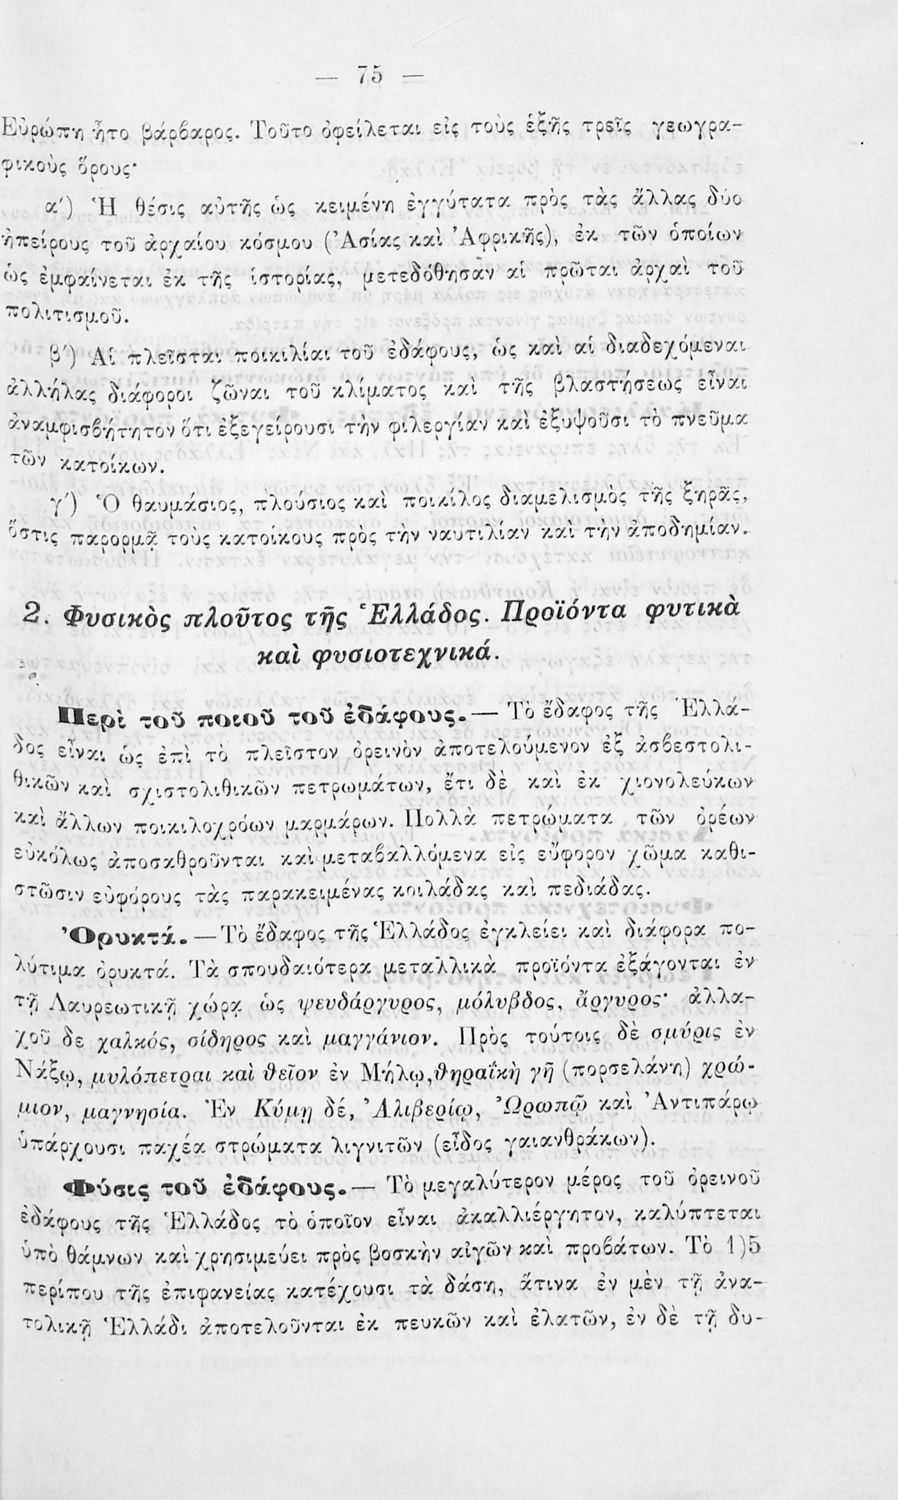 — 75 —
Εὐρώπη ἦτο βάρβαρος. Τοῦτο ὀφείλεται εἰς τοὺς ἑξῆς τρεῖς γεωγρα-
φικοὺς ὅρους·
α΄) Ἡ θέσις αὐτῆς ὡς κειμένη ἐγγύτατα πρὸς τὰς ἄλλας δύο
ἠπείρους τοῦ ἀρχαίου κόσμου (Ἀσίας καὶ Ἀφρικῆς), ἐκ τῶν ὁποίων
ὡς ἐμφαίνεται ἐκ τῆς ἱστορίας, μετεδόθησαν αἱ πρῶται ἀρχαὶ τοῦ
πολιτισμοῦ.
β΄) Αἱ πλεῖσται ποικιλίαι τοῦ ἐδάφους, ὡς καὶ αἱ διαδεχόμεναι
ἀλλήλας διάφοροι ζῶναι τοῦ κλίματος καὶ τῆς βλαστήσεως εἶναι
ἀναμφισβήτητον ὅτι ἐξεγείρουσι τὴν φιλεργίαν καὶ ἐξυψοῦσι τὸ πνεῦμα
τῶν κατοίκων.
γ΄) Ὁ θαυμάσιος, πλούσιος καὶ ποικίλος διαμελισμὸς τῆς ξηρᾶς,
ὅστις παρορμᾷ τοὺς κατοίκους πρὸς τὴν ναυτιλίαν καὶ τὴν ἀποδημίαν.
2. Φυσικὸς πλοῦτος τῆς Ἑλλάδος. Προϊόντα φυτικὰ
καὶ φυσιοτεχνικά.
Περὶ τοῦ ποιοῦ τοῦ ἐδάφους.— Τὸ ἔδαφος τῆς Ἑλλά-
δος εἶναι ὡς ἐπὶ τὸ πλεῖστον ὀρεινὸν ἀποτελούμενον ἐξ ἀσβεστολι-
θικῶν καὶ σχιστολιθικῶν πετρωμάτων, ἔτι δὲ καὶ ἐκ χιονολεύκων
καὶ ἄλλων ποικιλοχρόων μαρμάρων. Πολλὰ πετρώματα τῶν ὀρέων
εὐκόλως ἀποσαθροῦνται καὶ μεταβαλλόμενα εἰς εὔφορον χῶμα καθι-
στῶσιν εὐφόρους τὰς παρακειμένας κοιλάδας καὶ πεδιάδας.
Ὀρυκτά.—Τὸ ἔδαφος τῆς Ἑλλάδος ἐγκλείει καὶ διάφορα πο-
λύτιμα ὀρυκτά. Τὰ σπουδαιότερα μεταλλικὰ προϊόντα ἐξάγονται ἐν
τῇ Λαυρεωτικῇ χώρᾳ ὡς ψευδάργυρος, μόλυβδος, ἄργυρος· ἀλλα-
χοῦ δὲ χαλκός, σίδηρος καὶ μαγγάνιον. Πρὸς τούτοις δὲ σμύρις ἐν
Νάξῳ, μυλόπετραι καὶ θεῖον ἐν Μήλῳ,θηραϊκὴ γῆ (πορσελάνη) χρώ-
μιον, μαγνησία. Ἐν Κύμῃ δέ, Ἀλιβερίῳ, Ὠρωπῷ καὶ Ἀντιπάρῳ
ὑπάρχουσι παχέα στρώματα λιγνιτῶν (εἶδος γαιανθράκων).
Φύσις τοῦ ἐδάφους.— Τὸ μεγαλύτερον μέρος τοῦ ὀρεινοῦ
ἐδάφους τῆς Ἑλλάδος τὸ ὁποῖον εἶναι ἀκαλλιέργητον, καλύπτεται
ὑπὸ θάμνων καὶ χρησιμεύει πρὸς βοσκὴν αἰγῶν καὶ προβάτων. Τὸ 1)5
περίπου τῆς ἐπιφανείας κατέχουσι τὰ δάση, ἅτινα ἐν μὲν τῇ ἀνα-
τολικῇ Ἑλλάδι ἀποτελοῦνται ἐκ πευκῶν καὶ ἐλατῶν, ἐν δὲ τῇ δυ-